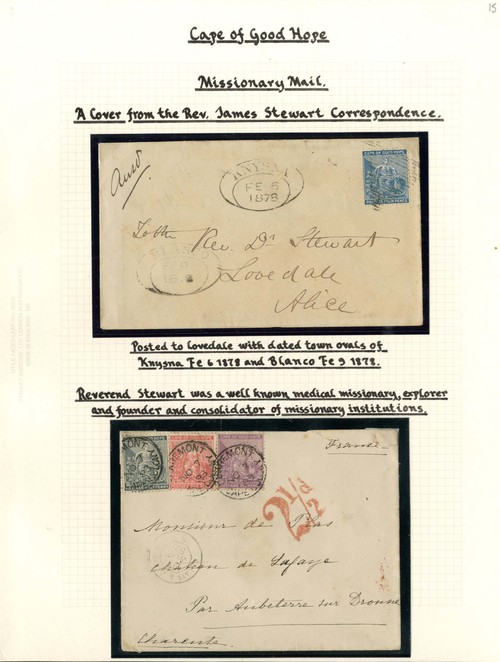 15
Cape of Good Hope
Missionary Mail.
A Cover from the Rev. James Stewart Correspondence.
KNYSNA
FE 6
1878
CAPE OF GOOD HOPE
Rev. Dr Stewart
BLANCO
Lovedale
Alice
Posted to Lovedale with dated town ovals of
Knysna Fe 6 1878 and Blanco Fe 9 1878.
Reverend Stewart was a well known medical missionary, explorer
and founder and consolidator of missionary institutions.
France
2½d
Monsieur de
de
Par Aubeterre sur Dronne
Charente